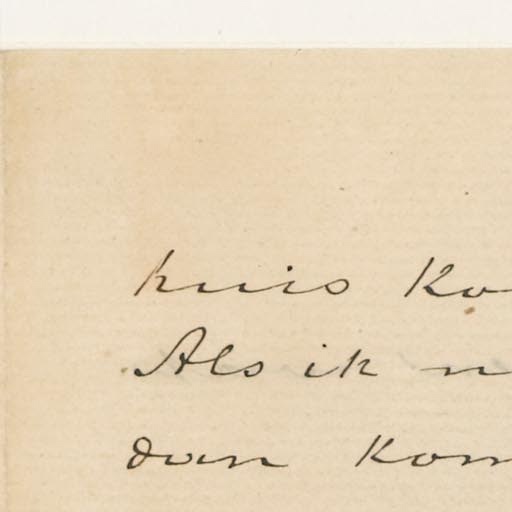 huis ko
Als ik n
dan kom